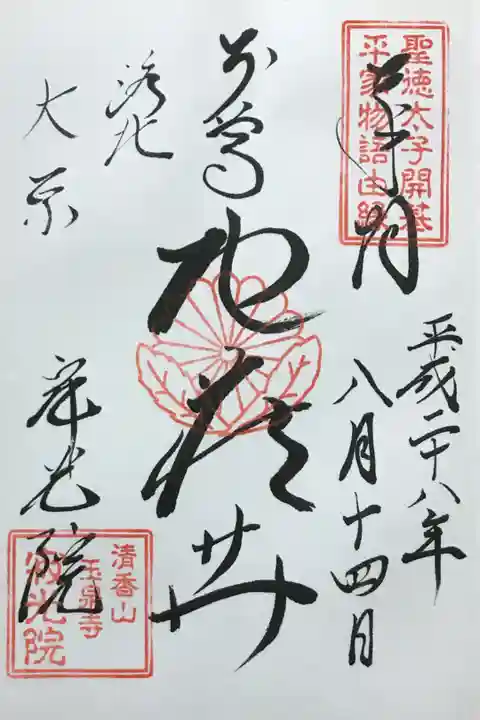 聖徳太子開基
平家物語由縁
奉拝
平成二十八年
八月十四日
本尊
地蔵𦬇
洛北
大原
寂光院
清香山
玉泉寺
寂光院